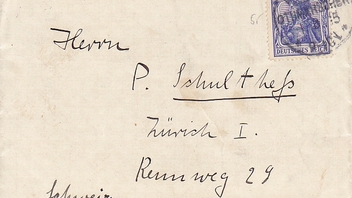 Herrn
P. Schulthess
Zürich I.
Rennweg 29
Schweiz
DEUTSCHES REICH